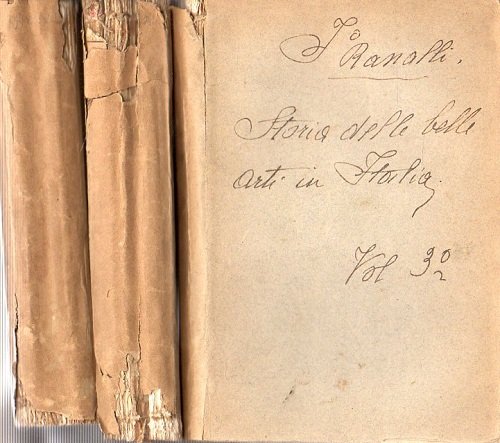 F. Ranalli.
Storia delle belle
arti in Italia,
Vol 3º